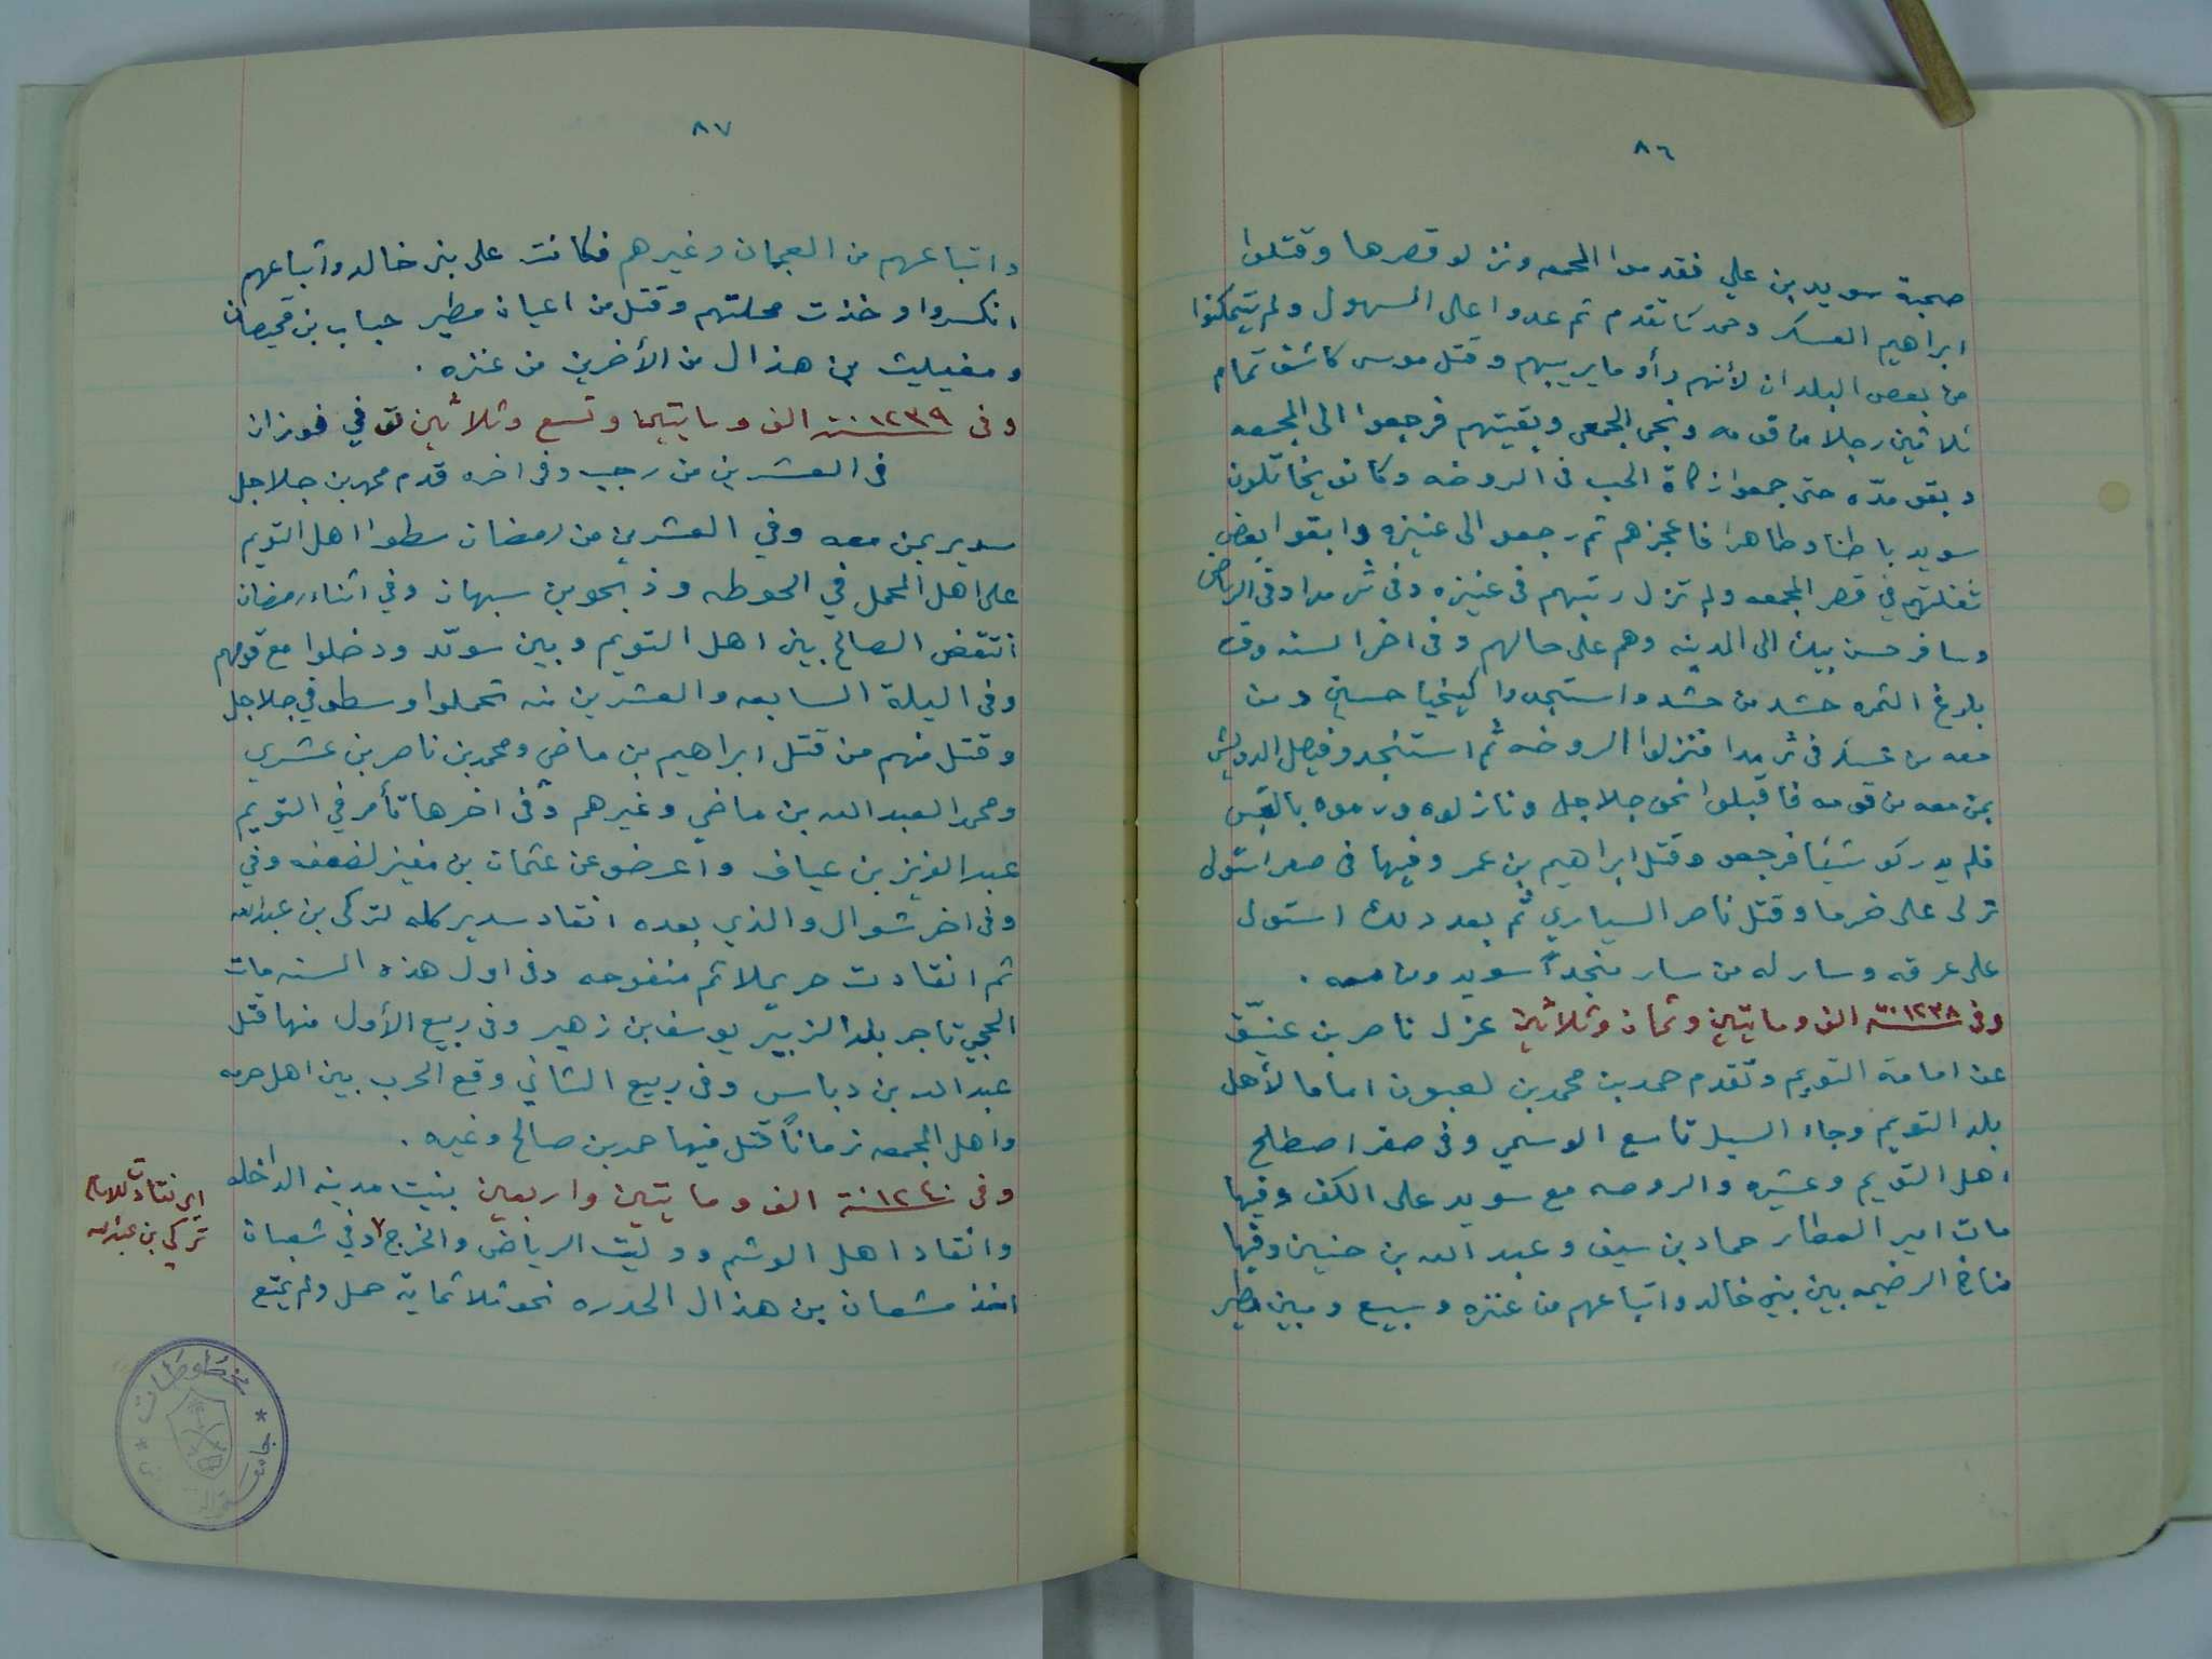 ٨٦
صحبة سويد بن علي فقدموا المجمعه ونزلو قصرها وقتلوا
ابراهيم العسكر وحمد كما تقدم ثم عدوا على السهول ولم يتمكنوا
من بعض البلدان لأنهم رأو ما يريبهم وقتل موسى كاشف تمام
ثلاثين رجلا من قومه ونجى الجمعى وبقيتهم فرجعوا الى المجمعه
وبقو مدّه حتى جمعوا زكاة الحب فى الروضه وكانو يخاتلون
سويد باطنا وظاهرا فاعجزهم ثم رجعوا الى عنيزه وابقوا بعض
ثقلتهم في قصر المجمعه ولم تزل رتبهم فى عنيزه وفى ثرمدا وفى الرياض
وسافر حسن بيك الى المدينه وهم على حالهم وفى اخر السنه وقت
بلوغ الثمره حشد من حشد واستنجدوا كيخيا حسين ومن
معه من عسكر فى ثرمدا فنزلوا الروضه ثم استنجدو فيصل الدويش
بمن معه من قومه فاقبلوا نحو جلاجل ونازلوه ورموه بالقبس
فلم يدركو شيئا فرجعو وقتل ابراهيم بن عمر وفيها فى صفر استولى
تركى على ضرما وقتل ناصر السياري ثم بعد ذلك استولى
على عرقه وسار له من سار منجداً سويد ومن معه .
وفى سنة ١٢٣٨ الف ومايتين وثمان وثلاثين عزل ناصر بن عنيّق
عن امامة التويم وتقدم حمد بن محمد بن لعبون اماما لأهل
بلد التويم وجاء السيل تاسع الوسمي وفى صفر اصطلح
اهل التويم وعشيره والروضه مع سويد على الكف وفيها
مات امير العطار حماد بن سيف وعبد الله بن حنين وفيها
مناخ الرضيمه بين بني خالد واتباعهم من عنزه وسبيع وبين مطير
٨٧
واتباعهم من العجمان وغيرهم فكانت على بنى خالد وأتباعهم
انكسروا وخذت محلتهم وقتل من اعيان مطير حباب بن قحيصان
ومغيليث بن هذال من الأخرين من عنزه .
وفى سنة ١٢٣٩ الف ومايتين وتسع وثلاثين توفي فوزان
فى العشرين من رجب وفى اخره قدم محمد بن جلاجل
سدير بمن معه وفي العشرين من رمضان سطوا اهل التويم
على اهل المحمل في الحوطه وذبحو بن سبهان وفي اثناء رمضان
انتقض الصلح بين اهل التويم وبين سويد ودخلوا مع قومهم
وفى اليلة السابعه والعشرين منه تحملوا وسطو في جلاجل
وقتل منهم من قتل ابراهيم بن ماضي ومحمد بن ناصر بن عشري
ومحمد العبد الله بن ماضي وغيرهم وفى اخرها تأمر في التويم
عبد العزيز بن عياف واعرضو عن عثمان بن مغيز لضعفه وفي
وفى اخر شوال والذي بعده انقاد سدير كله لتركى بن عبدالله
ثم انقادت حريملا ثم منفوحه وفى اول هذه السنه مات
الحجي تاجر بلد الزبير يوسف بن زهير وفى ربيع الأول منها قتل
عبد الله بن دباس وفى ربيع الثاني وقع الحرب بين اهل حرمه
واهل المجمعه زماناً قتل فيها حمد بن صالح وغيره .
وفى سنة ١٢٤٠ الف ومايتين واربعين بنيت مدينة الداخله
وانقاد اهل الوشم ووليت الرياض والخرج ٢ وفي شعبان
اخذ مشعان بن هذال الحدره نحو ثلاثماية حمل ولم يمتع
اي انقادت للامام
تركي بن عبدالله
مخطوطات * جامعة